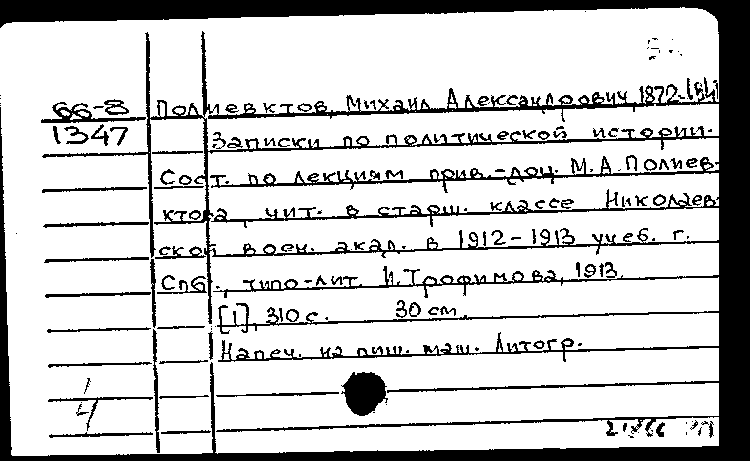 66-8 Полиевктов, Михаил Александрович, 1872-
1347 Записки по политической истории.
Сост. по лекциям прив.-доц. М.А. Полиев-
ктова, чит. в старш. классе Николаев-
ской воен. акад. в 1912-1913 учеб. г.
Спб., типо-лит. И. Трофимова, 1913.
[1], 310 с. 30 см.
Напеч. на пиш. маш. Литогр.
1
4